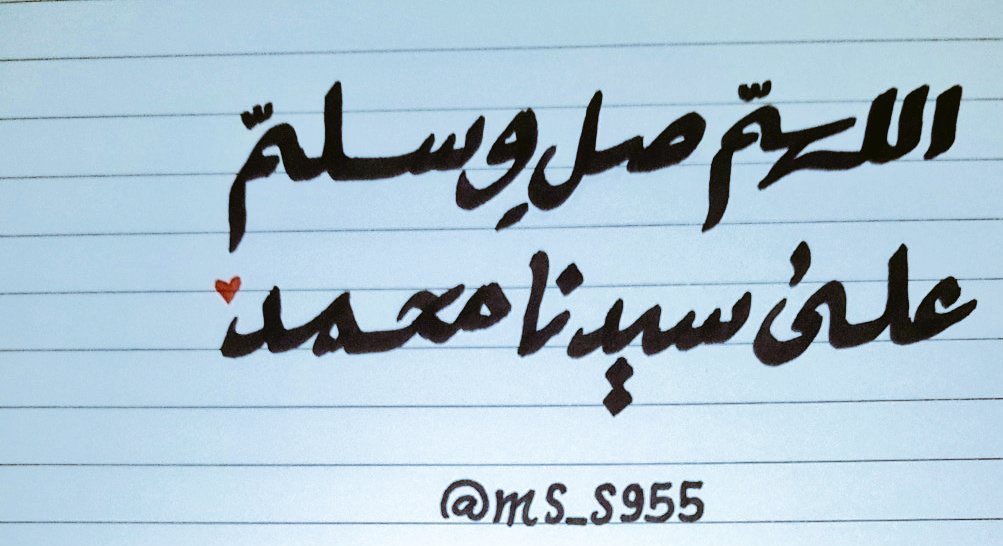 اللهمّ صل وسلمّ
على سيدنا محمد
@ms_s955